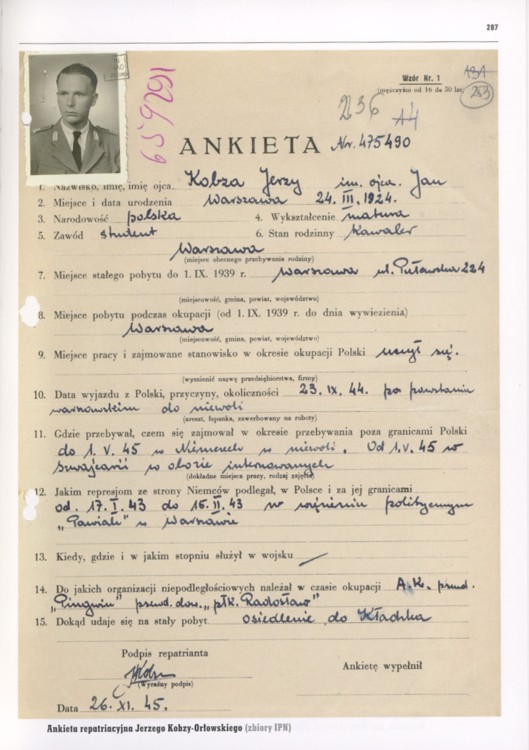 287
Wzór Nr. 1
(mężczyźni od 16 do 50 lat)
131
253
236
A4
1679259
ANKIETA Nr. 475490
1. Nazwisko, imię, imię ojca. Kobza Jerzy im. ojca. Jan
2. Miejsce i data urodzenia Warszawa 24. III. 1924.
3. Narodowość polska 4. Wykształcenie matura
5. Zawód student 6. Stan rodzinny kawaler
Warszawa
(miejsce obecnego przebywania rodziny)
7. Miejsce stałego pobytu do 1. IX. 1939 r. Warszawa ul. Puławska 224
(miejscowość, gmina, powiat, województwo)
8. Miejsce pobytu podczas okupacji (od 1. IX. 1939 r. do dnia wywiezienia)
Warszawa
(miejscowość, gmina, powiat, województwo)
9. Miejsce pracy i zajmowane stanowisko w okresie okupacji Polski uczył się.
(wymienić nazwę przedsiębiorstwa, firmy)
10. Data wyjazdu z Polski, przyczyny, okoliczności 23. IX. 44. po powstaniu
warszawskim do niewoli
(areszt, łapanka, zawerbowany na roboty)
11. Gdzie przebywał, czem się zajmował w okresie przebywania poza granicami Polski
do 1. V. 45 w Niemczech w niewoli. Od 1. V. 45 w
Szwajcarii w obozie internowanych
(dokładne miejsca pracy, rodzaj zajęcia)
12. Jakim represjom ze strony Niemców podlegał, w Polsce i za jej granicami
od. 17. I. 43 do 15. II. 43 w więzieniu politycznym
„Pawiak” w Warszawie
13. Kiedy, gdzie i w jakim stopniu służył w wojsku
14. Do jakich organizacji niepodległościowych należał w czasie okupacji A.K. pseud.
„Pingwin” pseud. dow. „płk. Radosław”
15. Dokąd udaje się na stały pobyt osiedlenie do Kładzka
Podpis repatrianta
Ankietę wypełnił
(Wyraźny podpis)
Data 26. XI. 45.
Ankieta repatriacyjna Jerzego Kobzy-Orłowskiego (zbiory IPN)